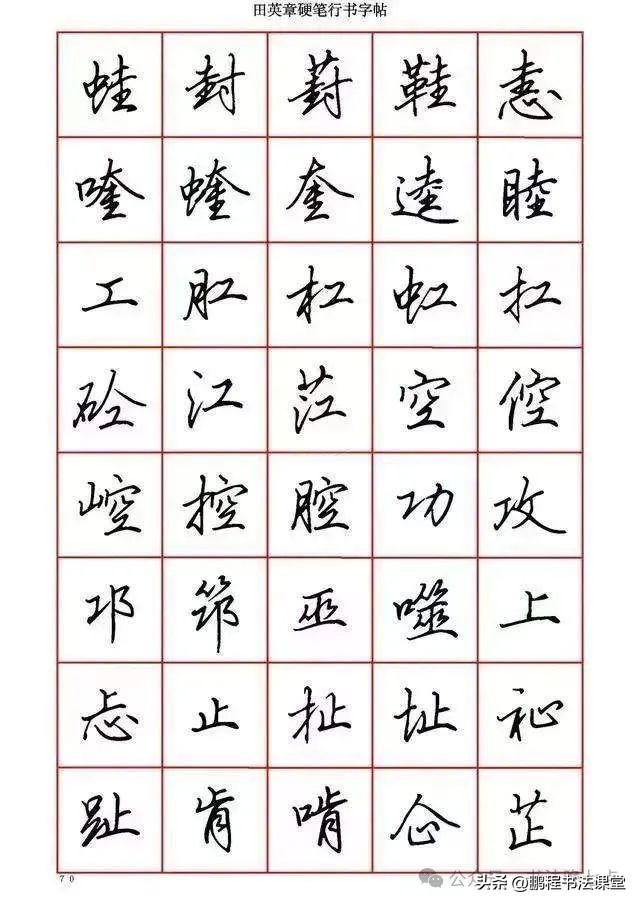 田英章硬笔行书字帖
蛙 封 葑 鞋 恚
喹 蝰 奎 逵 睦
工 肛 杠 虹 扛
砼 江 茳 空 倥
崆 控 腔 功 攻
邛 筇 巫 噬 上
忐 止 扯 址 祉
趾 肯 啃 企 芷
70
头条 @鹏程书法课堂